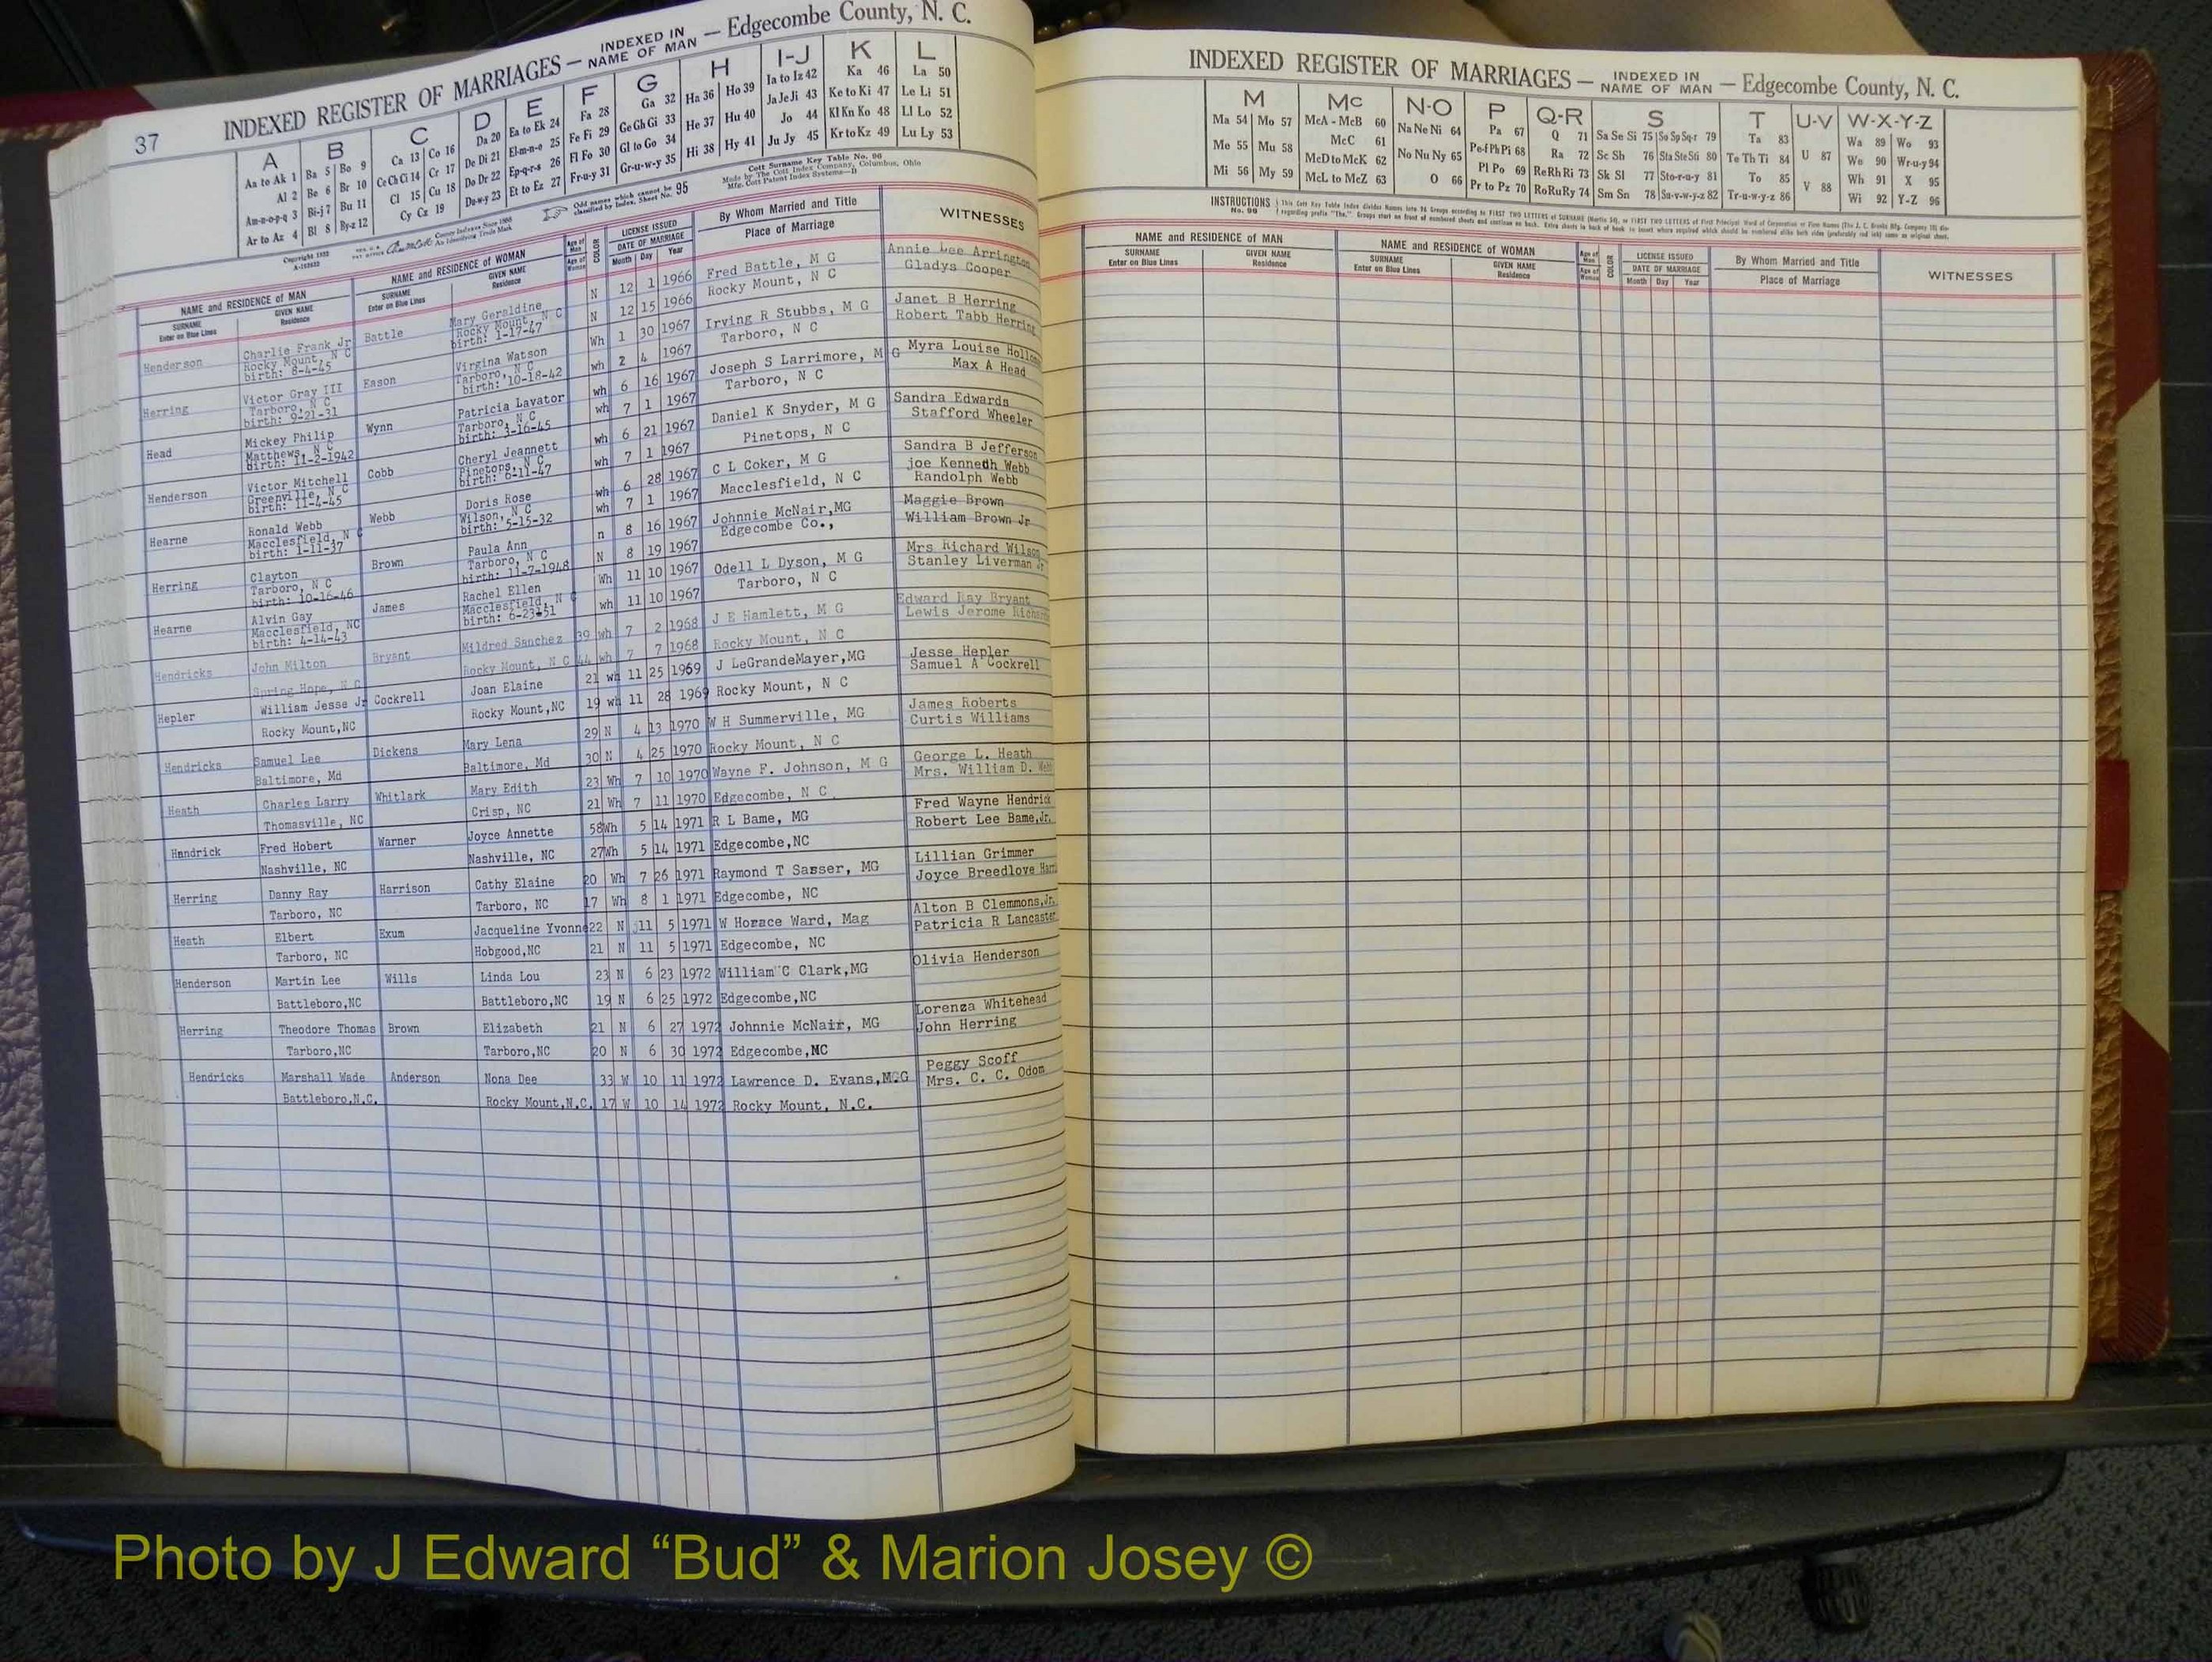 37
INDEXED REGISTER OF MARRIAGES — INDEXED IN NAME OF MAN — Edgecombe County, N. C.
A B C D E F G H I-J K L
Aa to Ak 1 Ba 5 Bo 9 Ca 13 Co 16 Da 20 Ea to Ek 24 Fa 28 Ga 32 Ha 36 Ho 39 Ia to Iz 42 Ka 46 La 50
Al 2 Be 6 Br 10 Ce Ch Ci 14 Cr 17 De Di 21 El-m-n-o 25 Fe Fi 29 Ge Gh Gi 33 He 37 Hu 40 Ja Je Ji 43 Ke to Ki 47 Le Li 51
Am-n-o-p-q 3 Bi-j 7 Bu 11 Cl 15 Cu 18 Do Dr 22 Ep-q-r-s 26 Fl Fo 30 Gl to Go 34 Hi 38 Hy 41 Jo 44 Kl Kn Ko 48 Ll Lo 52
Ar to Az 4 Bl 8 By-z 12 Cy Cz 19 Du-w-y 23 Et to Ez 27 Fr-u-y 31 Gr-u-w-y 35 Ju Jy 45 Kr to Kz 49 Lu Ly 53
Odd names which cannot be classified by Index. Sheet No. 95
Cott Surname Key Table No. 96
Made by The Cott Index Company, Columbus, Ohio
NAME and RESIDENCE of MAN NAME and RESIDENCE of WOMAN Age of Man Age of Woman COLOR LICENSE ISSUED DATE OF MARRIAGE By Whom Married and Title WITNESSES
SURNAME Enter on Blue Lines GIVEN NAME Residence SURNAME Enter on Blue Lines GIVEN NAME Residence Month Day Year Place of Marriage
Henderson Charlie Frank Jr Battle Mary Geraldine N 12 1 1966 Fred Battle, M G Annie Lee Arrington
Rocky Mount, N C Rocky Mount, N C N 12 15 1966 Rocky Mount, N C Gladys Cooper
birth: 8-4-45 birth: 1-17-47
Herring Victor Gray III Eason Virgina Watson Wh 1 30 1967 Irving R Stubbs, M G Janet B Herring
Tarboro, N C Tarboro, N C wh 2 4 1967 Tarboro, N C Robert Tabb Herring
birth: 9-21-31 birth: 10-18-42
Head Mickey Philip Wynn Patricia Lavator wh 6 16 1967 Joseph S Larrimore, M G Myra Louise
Matthews, N C Tarboro, N C wh 7 1 1967 Tarboro, N C Max A Head
birth: 11-2-1942 birth: 3-16-45
Henderson Victor Mitchell Cobb Cheryl Jeannett wh 6 21 1967 Daniel K Snyder, M G Sandra Edwards
Greenville, N C Pinetops, N C wh 7 1 1967 Pinetops, N C Stafford Wheeler
birth: 11-4-45 birth: 6-11-47
Hearne Ronald Webb Webb Doris Rose wh 6 28 1967 C L Coker, M G Sandra B Jefferson
Macclesfield, N C Wilson, N C wh 7 1 1967 Macclesfield, N C joe Kenneth Webb
birth: 1-11-37 birth: 5-15-32 Randolph Webb
Herring Clayton Brown Paula Ann n 8 16 1967 Johnnie McNair,MG Maggie Brown
Tarboro, N C Tarboro, N C N 8 19 1967 Edgecombe Co., William Brown Jr
birth: 10-16-46 birth: 11-7-1948
Hearne Alvin Gay James Rachel Ellen Wh 11 10 1967 Odell L Dyson, M G Mrs Richard Wilson
Macclesfield, NC Macclesfield, N C wh 11 10 1967 Tarboro, N C Stanley Liverman Jr
birth: 4-14-43 birth: 6-23-51
Hendricks John Milton Bryant Mildred Sanchez 39 wh 7 2 1968 J E Hamlett, M G Edward Ray Bryant
Spring Hope, N C Rocky Mount, N C 44 wh 7 7 1968 Rocky Mount, N C Lewis Jerome
Hepler William Jesse Jr Cockrell Joan Elaine 21 wh 11 25 1969 J LeGrandeMayer,MG Jesse Hepler
Rocky Mount,NC Rocky Mount,NC 19 wh 11 28 1969 Rocky Mount, N C Samuel A Cockrell
Hendricks Samuel Lee Dickens Mary Lena 29 N 4 13 1970 W H Summerville, MG James Roberts
Baltimore, Md Baltimore, Md 30 N 4 25 1970 Rocky Mount, N C Curtis Williams
Heath Charles Larry Whitlark Mary Edith 23 Wh 7 10 1970 Wayne F. Johnson, M G George L. Heath
Thomasville, NC Crisp, NC 21 Wh 7 11 1970 Edgecombe, N C Mrs. William D.
Hendrick Fred Hobert Warner Joyce Annette 58 Wh 5 14 1971 R L Bame, MG Fred Wayne Hendrick
Nashville, NC Nashville, NC 27 Wh 5 14 1971 Edgecombe,NC Robert Lee Bame,Jr.
Herring Danny Ray Harrison Cathy Elaine 20 Wh 7 26 1971 Raymond T Sasser, MG Lillian Grimmer
Tarboro, NC Tarboro, NC 17 Wh 8 1 1971 Edgecombe, NC Joyce Breedlove
Heath Elbert Exum Jacqueline Yvonne 22 N 11 5 1971 W Horace Ward, Mag Alton B Clemmons,Jr.
Tarboro, NC Hobgood,NC 21 N 11 5 1971 Edgecombe, NC Patricia R Lancaster
Henderson Martin Lee Wills Linda Lou 23 N 6 23 1972 William C Clark,MG Olivia Henderson
Battleboro,NC Battleboro,NC 19 N 6 25 1972 Edgecombe,NC
Herring Theodore Thomas Brown Elizabeth 21 N 6 27 1972 Johnnie McNair, MG Lorenza Whitehead
Tarboro,NC Tarboro,NC 20 N 6 30 1972 Edgecombe,NC John Herring
Hendricks Marshall Wade Anderson Nona Dee 33 W 10 11 1972 Lawrence D. Evans,M.G Peggy Scoff
Battleboro,N.C. Rocky Mount,N.C. 17 W 10 14 1972 Rocky Mount, N.C. Mrs. C. C. Odom
INDEXED REGISTER OF MARRIAGES — INDEXED IN NAME OF MAN — Edgecombe County, N. C.
M Mc N-O P Q-R S T U-V W-X-Y-Z
Ma 54 Mo 57 McA - McB 60 Na Ne Ni 64 Pa 67 Q 71 Sa Se Si 75 So Sp Sq-r 79 Ta 83 U 87 Wa 89 Wo 93
Me 55 Mu 58 McC 61 No Nu Ny 65 Pe-f Ph Pi 68 Ra 72 Sc Sh 76 Sta Ste Sti 80 Te Th Ti 84 V 88 We 90 Wr-u-y 94
Mi 56 My 59 McD to McK 62 O 66 Pl Po 69 Re Rh Ri 73 Sk Sl 77 Sto-r-u-y 81 To 85 Wh 91 X 95
McL to McZ 63 Pr to Pz 70 Ro Ru Ry 74 Sm Sn 78 Su-v-w-y-z 82 Tr-u-w-y-z 86 Wi 92 Y-Z 96
INSTRUCTIONS
NAME and RESIDENCE OF MAN NAME and RESIDENCE OF WOMAN Age of Man Age of Woman COLOR LICENSE ISSUED DATE OF MARRIAGE By Whom Married and Title WITNESSES
SURNAME Enter on Blue Lines GIVEN NAME Residence SURNAME Enter on Blue Lines GIVEN NAME Residence Month Day Year Place of Marriage
Photo by J Edward “Bud” & Marion Josey ©